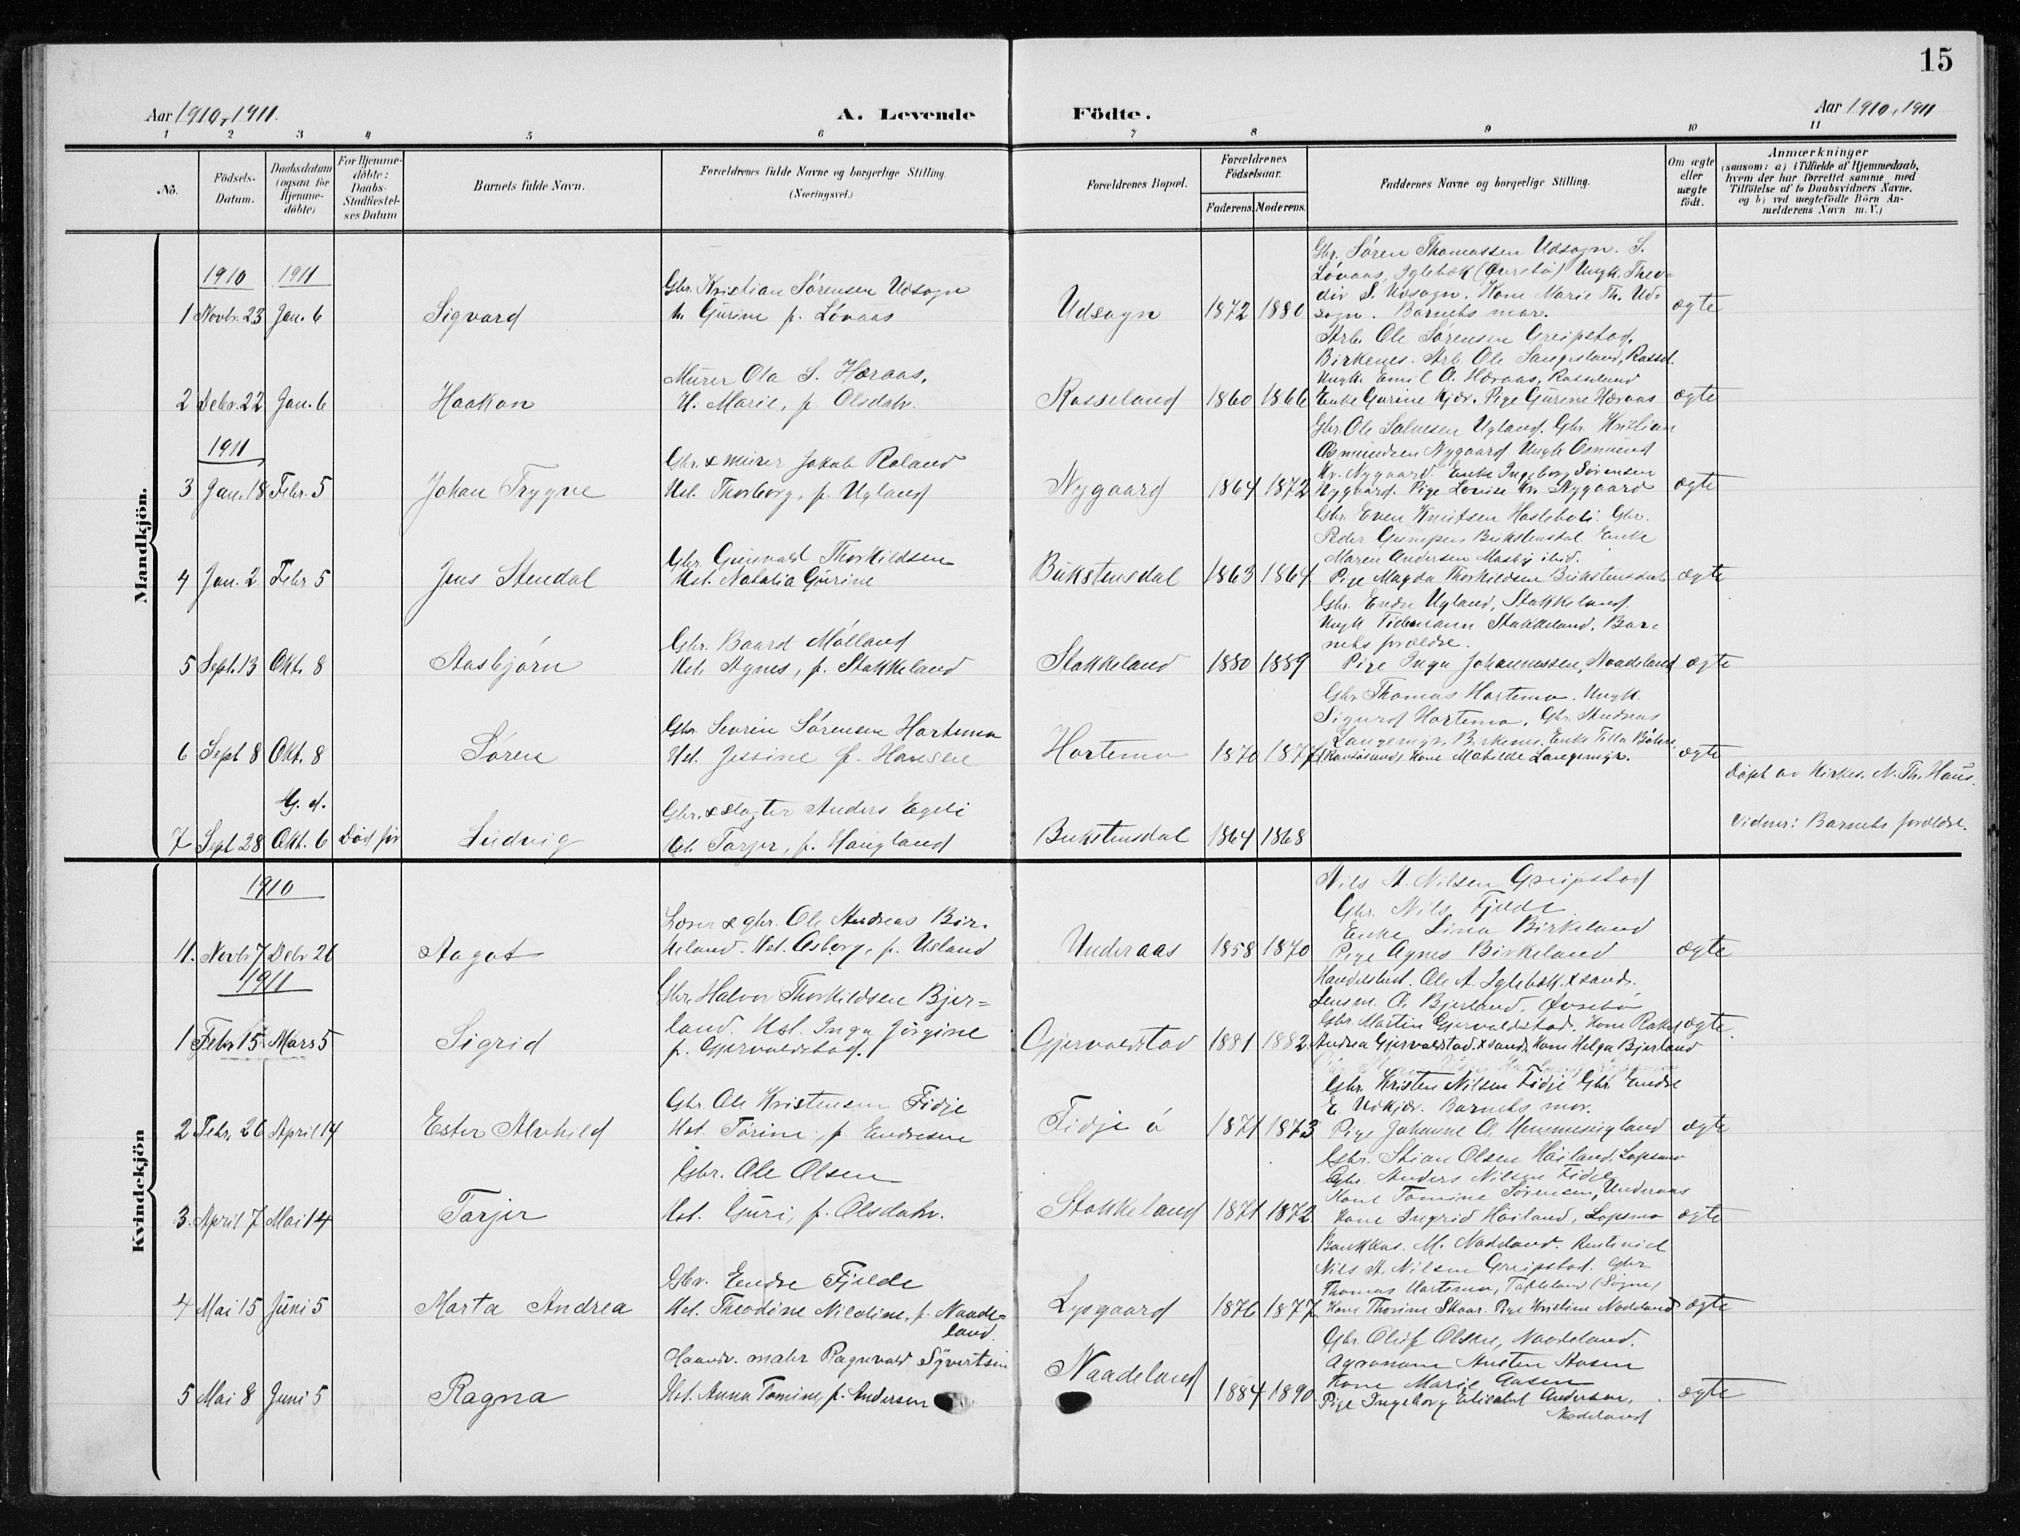 15
Aar 1910, 1911.
A. Levende
Födte.
Aar 1910, 1911
1 2 3 4 5 6 7 8 9 10 11
No.
Födsels-
Datum.
Daabsdatum
(ogsaa for
Hjemme-
döbte)
For Hjemme-
döbte:
Daabs-
Stadfæstel-
ses Datum
Barnets fulde Navn.
Forældrenes fulde Navne og borgerlige Stilling.
(Næringsvei.)
Forældrenes Bopæl.
Forældrenes
Födselsaar.
Faderens. Moderens.
Faddernes Navne og borgerlige Stilling.
Om ægte
eller
uægte
födt.
Anmærkninger
(saasom: a) i Tilfælde af Hjemmedaab,
hvem der har forrettet samme, med
Tilföielse af to Daabsvidners Navne,
og b) ved uægtefödte Börn An-
melderens Navn m. V.)
Mandkjön.
1910 1911
1 Novbr. 23 Jan. 6
Sigvard
Gbr. Kristian Sørensen Udsogn
h. Gurine f. Løvaas
Udsogn
1872 1880
Gbr. Søren Thomassen Udsogn. S.
Løvaas, Iglebæk (Øvrebø) Ungk. Theo-
dor S. Udsogn. Kone Marie Th. Ud-
sogn. Barnets mor.
ægte
2 Debr. 22 Jan. 6
Haakon
Murer Ola S. Høraas,
H. Marie, f. Olsdatr.
Rosseland
1860 1866
Arb. Ole Sørensen Greipstad,
Birkenes. Arb. Ole Langeland, Rossel.
Ungk. Emil O. Høraas, Rosseland
Enke Gurine Kjær. Pige Gurine Høraas
ægte
1911
3 Jan. 18 Febr. 5
Johan Trygve
Gbr. & murer Jakob Roland
Hst. Thorborg, f. Ugland
Nygaard
1864 1872
Gbr. Ole Salvesen Ugland. Gbr. Kristian
Osmundsen Nygaard Ungk Osmund
Kr. Nygaard Enke Ingeborg Sørensen
Nygaard. Pige Lovise Kr. Nygaard
ægte
4 Jan. 2 Febr 5
Jens Stendal
Gbr. Gunvald Thorkildsen
Hst. Natalia Gurine
Bukstensdal
1863 1864
Gbr. Even Knutsen Hosleboli. Gbr.
Peder Bukstensdal Enke
Maren Andersen Mosby ibid.
Pige Magda Thorkildsen Bukstensdal
ægte
5 Sept. 13 Okt. 8
Aasbjørn
Gbr. Baard Mølland
Hst. Agnes, f. Stokkeland
Stokkeland
1880 1889
Gbr. Endre Ugland, Stokkeland.
Ungk Tidemann Stokkeland. Bar-
nets forældre.
Pige Inga Johannessen, Naadeland
ægte
6 Sept 8 Okt. 8
Søren
Gbr. Severin Sørensen Hortemo
Hst. Jessine f. Hansen
Hortemo
1870 1877
Gbr Thomas Hortemo. Ungk
Sigurd Hortemo. Gbr. Andreas
Langemyr, Birkenes. Enke Tilla
Kone Mathilde Langemyr.
ægte
7 Sept 28
G. d.
Okt. 6 Død før
Ludvig
Gbr. & slagter Anders Egeli
H. Torjer, f. Haugland
Bukstensdal
1864 1868
Døpt av Kirkes. N. Th. Haus.
Vidner: Barnets forældre.
Kvindekjön
1910
11. Novbr 7 Debr 26
Aagot
Lærer & gbr. Ole Andreas Bir-
keland. Hst. Asborg, f. Usland
Underaas
1858 1870
Nils A. Nilsen Greipstad
Gbr. Nils Fjelde
Enke Lina Birkeland
Pige Agnes Birkeland
ægte
1911
1 Febr 15 Mars 5
Sigrid
Gbr. Halvor Thorkildsen Bjer-
land. Hst. Inga Jørgine
f. Gjervoldstad.
Gjervoldstad
1881 1882
Handelsbest. Ole A. Iglebæk, Xsand.
Lensm. O. Bjerland, Øvrebø
Gbr. Martin Gjervoldstad. Kone Rakel
Andrea Gjervoldstad, Xsand, Kone Helga Bjerland
ægte.
2 Febr. 26 April 14
Ester Alvhild
Gbr. Ole Kristensen Fidje
Hst. Torine, f. Endresen
Fidjeå
1871 1873
Gbr. Kristen Nilsen Fidje Gbr. Endre
E. Udkjær. Barnets mor.
Pige Johanne O. Hemmesigland
ægte
3. April 7 Mai 14
Torjer
Gbr. Ole Olsen
Hst. Guri, f. Olsdatr.
Stokkeland
1871 1872
Gbr. Stian Olsen Høiland, Lopsmo
Gbr. Anders Nilsen Fidje
Kone Tomine Sørensen, Underaas
Kone Ingrid Høiland, Lopsmo
ægte
4 Mai 15 Juni 5
Marta Andrea
Gbr. Endre Fjelde
Hst. Theodine Nicoline, f. Naade-
land.
Lysgaard
1876 1877
Bankkas. M. Nodeland.
Nils A. Nilsen Greipstad. Gbr
Thomas Hortemo, (Søgne)
Kone Thorine Skaar. Pige Kristine Nodeland
ægte
5 Mai 8 Juni 5
Ragna
Haandv. maler Ragnvald Syvertsen
Hst. Anna Tomine, f. Andersen
Naadeland
1884 1890
Gbr. Oluf Olsen, Naadeland.
Agronom Austen Aasen
Kone Marie Aasen
Pige Ingeborg Elisabet Andersen,
Nodeland
ægte